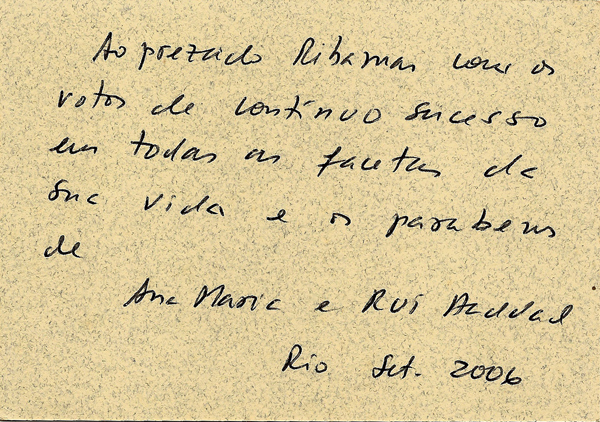 Ao prezado Ribamar com os
votos de contínuo sucesso
em todas as facetas da
sua vida e os parabens
de
Ana Maria e Rui Haddad
Rio Set. 2006